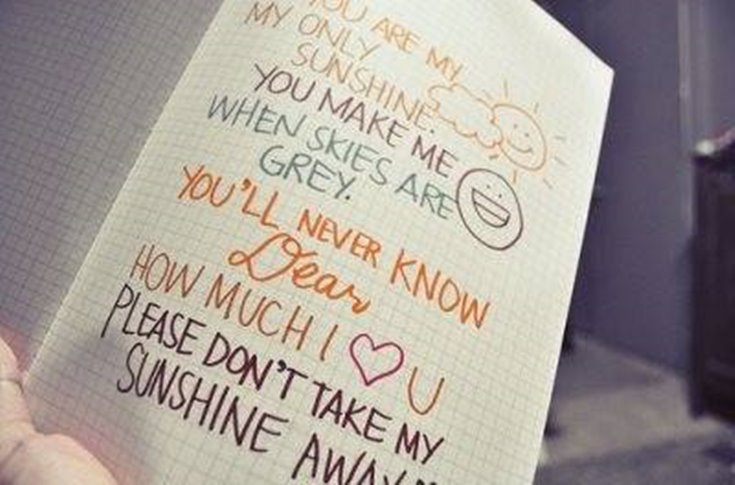 YOU ARE MY
MY ONLY
SUNSHINE.
YOU MAKE ME
WHEN SKIES ARE
GREY.
YOU'LL NEVER KNOW
Dear
HOW MUCH I U
PLEASE DON'T TAKE MY
SUNSHINE AWAY